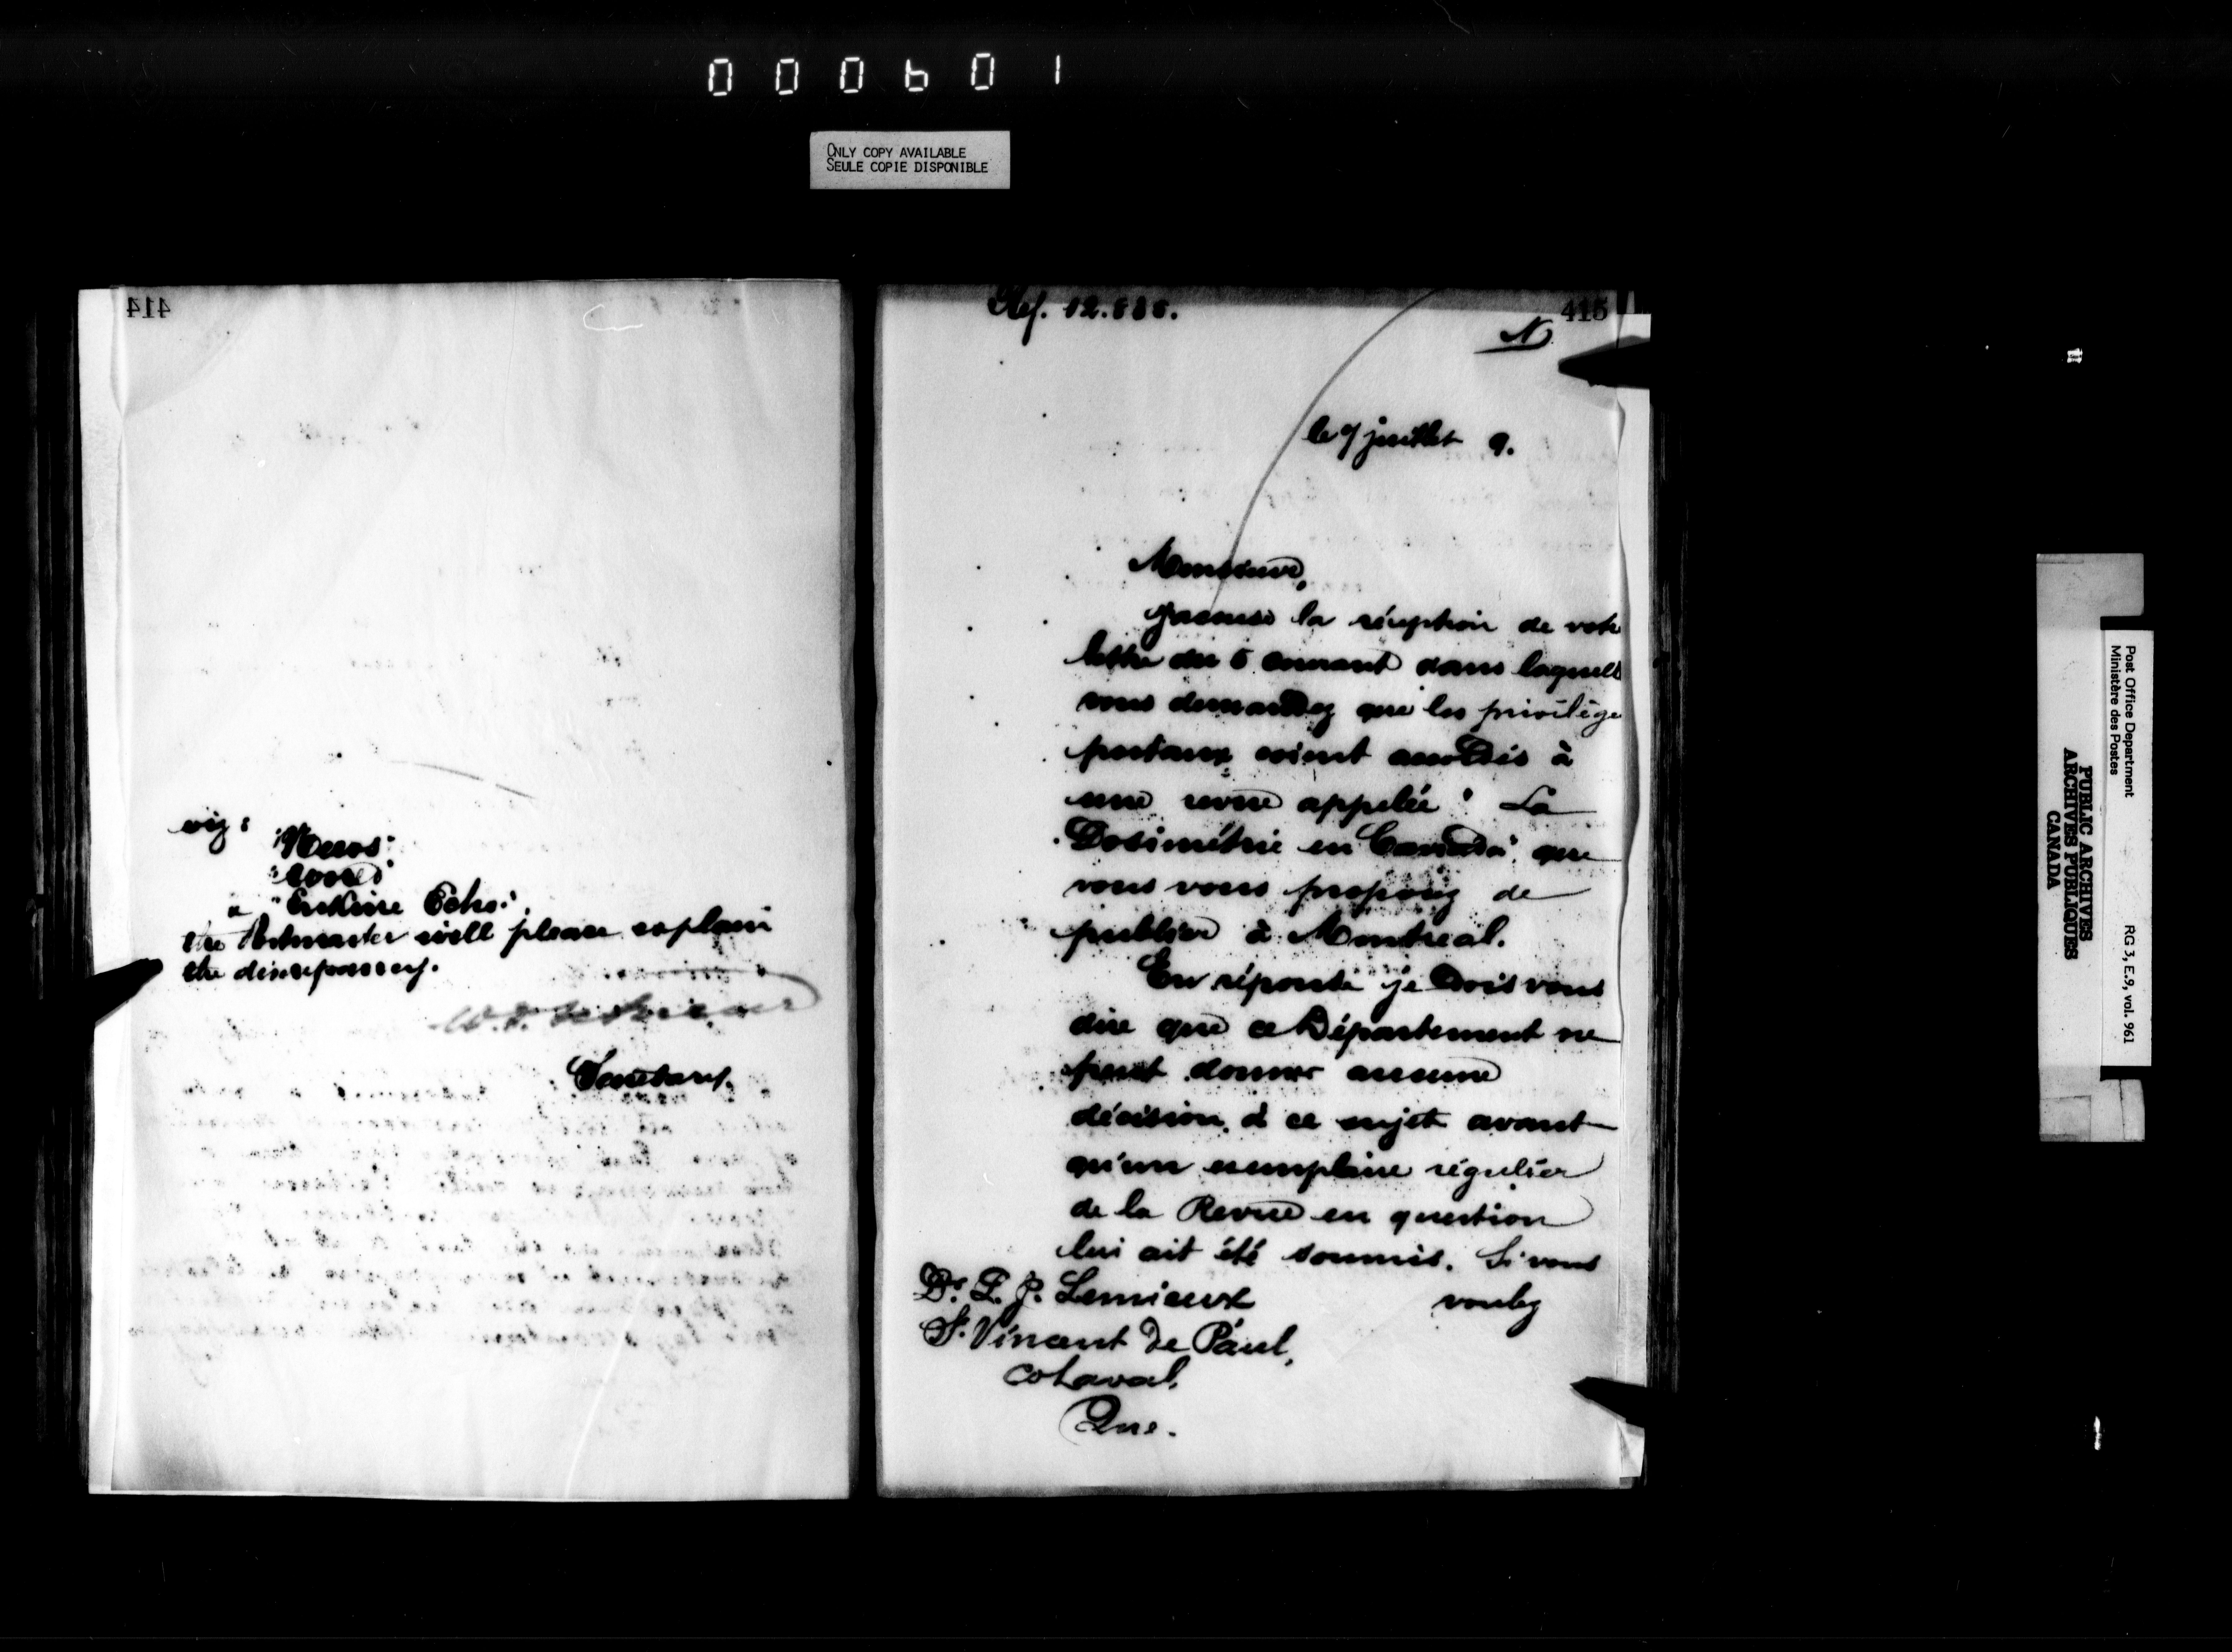 000601
ONLY COPY AVAILABLE
SEULE COPIE DISPONIBLE
414
viz:
"News"
"Erskine Echo".
the Postmaster will please explain
the discrepancy.
Secretary.
Ref. 12.
415
N
le 7 juillet 9.
Monsieur,
J'accuse la réception de votre
lettre du 5 courant dans laquelle
vous demandez que les privilèges
postaux soient accordés à
une revue appelée "La
Dosimétrie en Canada" que
vous vous proposez de
publier à Montreal.
En réponse je dois vous
dire que ce Département ne
peut donner aucune
décision à ce sujet avant
qu'un exemplaire régulier
de la Revue en question
lui ait été soumis. Si vous
voulez
Dr. P. J. Lemieux
St. Vincent de Paul,
Co Laval,
Que.
Post Office Department
Ministère des Postes
RG 3, E.9, vol. 961
PUBLIC ARCHIVES
ARCHIVES PUBLIQUES
CANADA